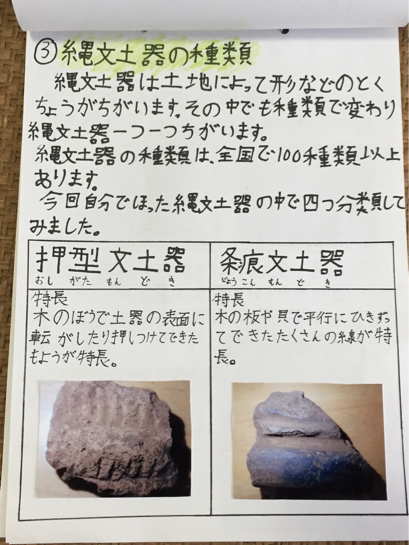 ③縄文土器の種類
縄文土器は土地によって形などのとく
ちょうがちがいます。その中でも種類で変わり
縄文土器一つ一つちがいます。
縄文土器の種類は、全国で100種類以上
あります。
今回自分でほった縄文土器の中で四つ分類して
みました。
押型文土器
おしがたもんどき
特長
木のぼうで土器の表面に
転がしたり押しつけてできた
もようが特長。
条痕文土器
じょうこんもんどき
特長
木の板や貝で平行にひきずっ
てできたたくさんの線が特
長。